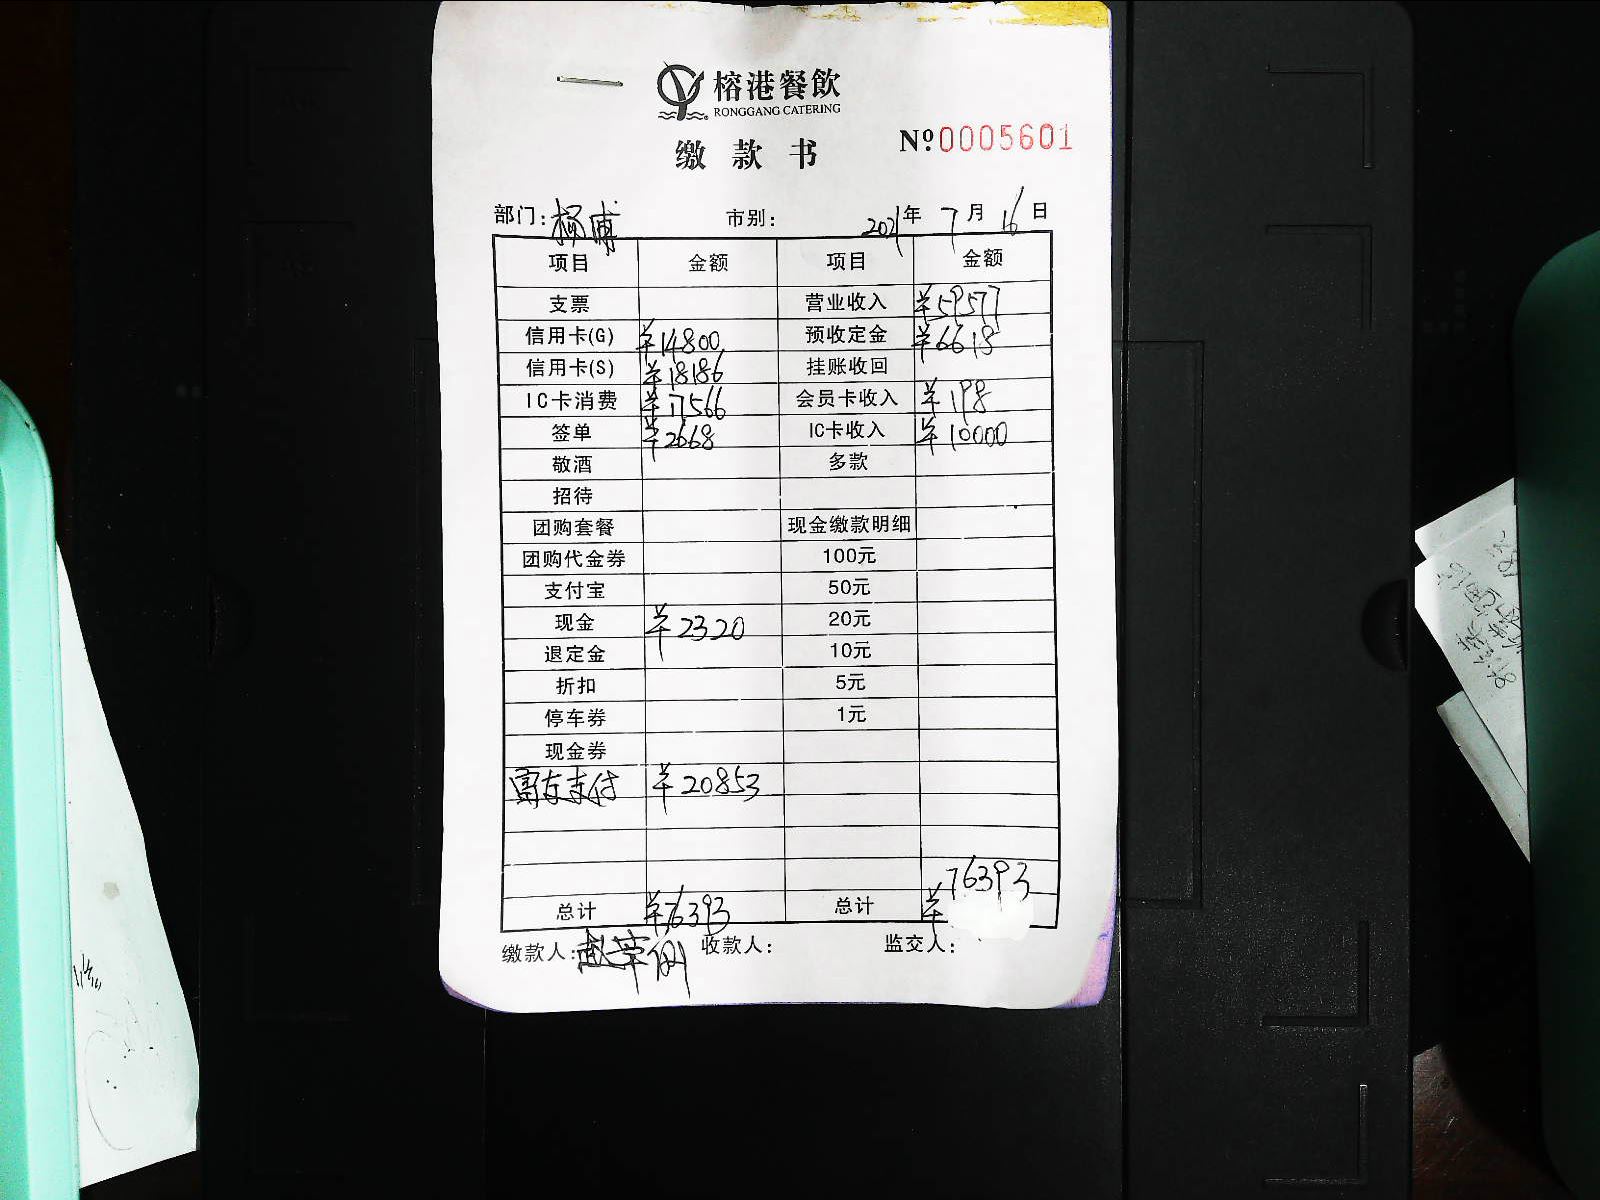 榕港餐飲
RONGGANG CATERING
缴款书
№0005601
部门:杨浦 市别: 2021年 7月 16日
项目 金额 项目 金额
支票 营业收入 ¥59577
信用卡(G) ¥14800 预收定金 ¥6618
信用卡(S) ¥18186 挂账收回
IC卡消费 ¥17566 会员卡收入 ¥198
签单 ¥2668 IC卡收入 ¥10000
敬酒 多款
招待
团购套餐 现金缴款明细
团购代金券 100元
支付宝 50元
现金 ¥2320 20元
退定金 10元
折扣 5元
停车券 1元
现金券
支付 ¥20853
总计 ¥76393 总计 ¥76393
缴款人: 收款人: 监交人: